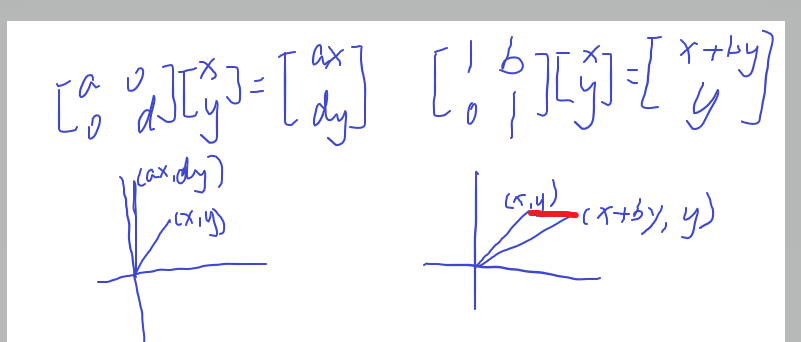 [a 0
0 d][x
y]=[ax
dy]
[1 b
0 1][x
y]=[x+by
y]
(ax,dy)
(x,y)
(x,y)
(x+by, y)